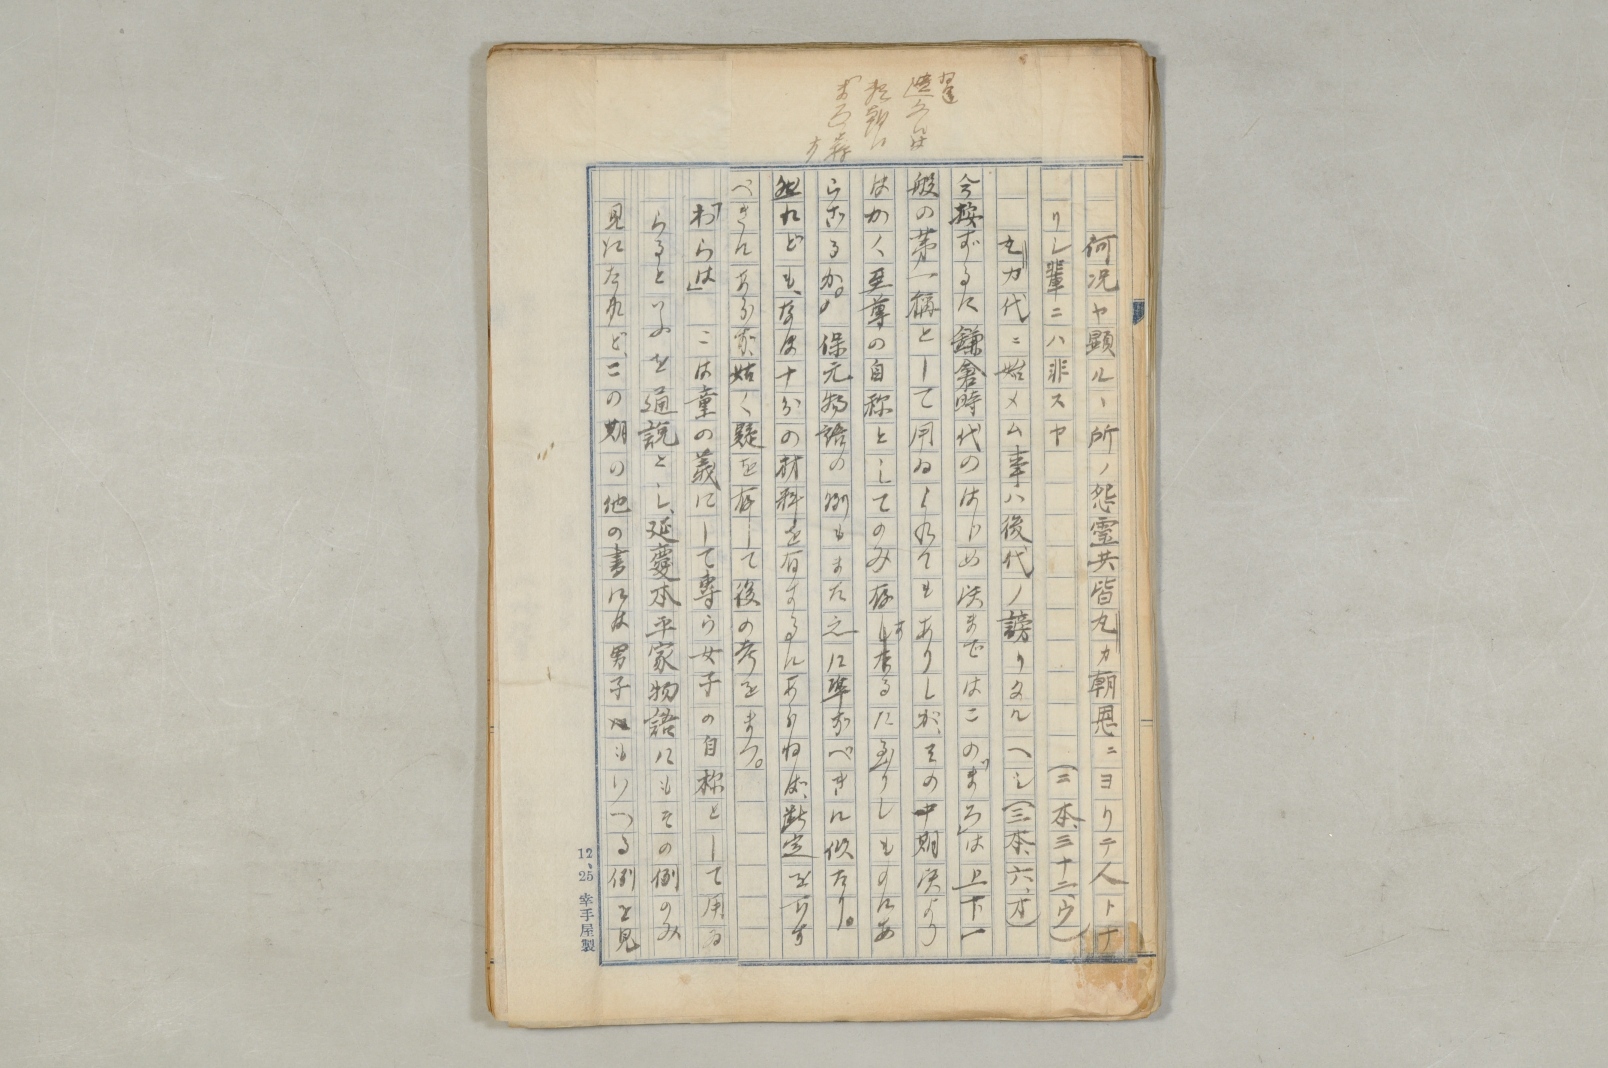 何況ヤ顕ルヽ所ノ怨霊共皆丸カ朝恩ニヨリテ人トナ
リシ輩ニハ非スヤ（二本、三十二、ウ）
丸カ代ニ始メム事ハ後代ノ謗リタルヘシ（三本、六、オ）
今按ずるに鎌倉時代のはじめ頃まではこの「まろ」は上下一
般の第一称として用ゐられてもありしが、その中期頃より
はかく至尊の自称としてのみ存するに至りしものにあ
らざるか。保元物語の例もまた之に準ずべきに似たり。
然れども、なほ十分の材料を有するにあらねば、断定を下す
べきにあらず姑く疑を存して後の考をまつ。
「わらは」　こは童の義にして専ら女子の自称として用ゐ
らるといふを通説とし、延慶本平家物語にもその例のみ
見にたれど、この期の他の書には男子にもいへる例を見
12、25 幸手屋製